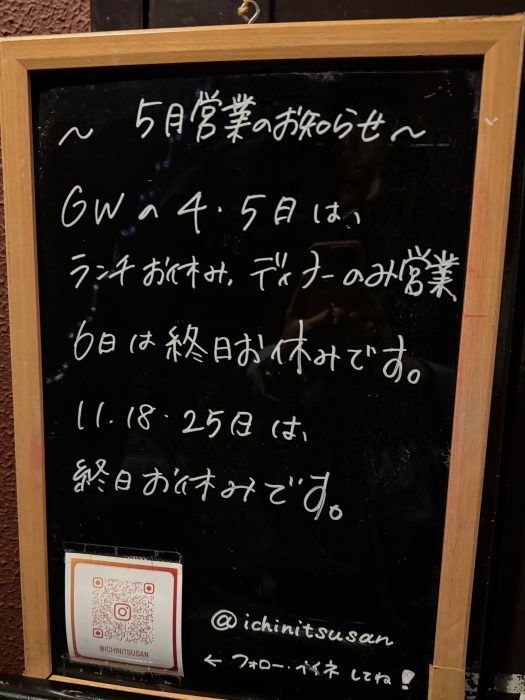 ～ 5月営業のお知らせ～
GWの4・5日は、
ランチお休み、ディナーのみ営業
6日は終日お休みです。
11.18・25日は、
終日お休みです。
@ICHINITSUSAN
@ichinitsusan
← フォロー・イイネしてね!